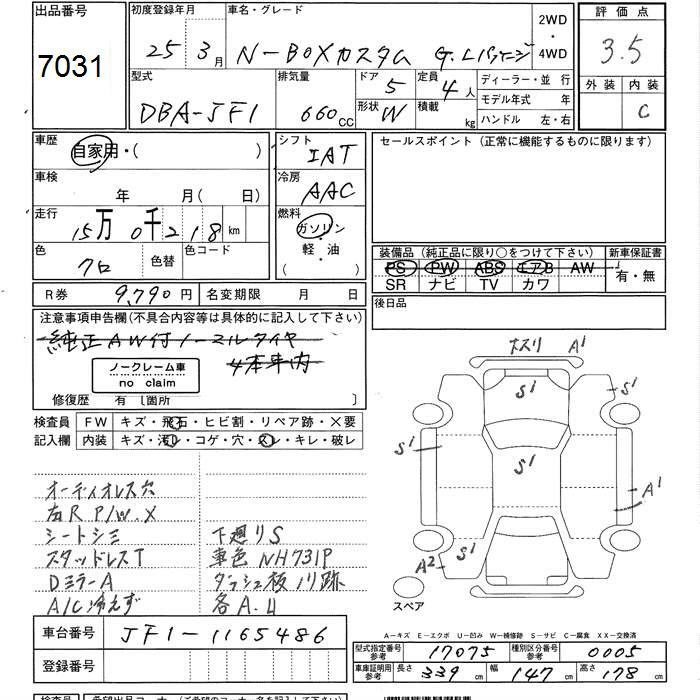 出品番号
7031
初度登録年月
25 3月
車名・グレード
N-BOXカスタム G.Lパッケージ
2WD
・
4WD
評価点
3.5
外装 内装
C
型式
DBA-JF1
排気量
660cc
ドア 5
形状 W
定員 4人
積載 kg
ディーラー・並行
モデル年式 年
ハンドル 左・右
車歴
自家用・( )
シフト
IAT
車検
年 月( 日)
冷房
AAC
走行
15万0千218km
燃料
ガソリン
・
軽・油
( )
色
クロ
色替
色コード
R券 9,790円
名変期限 月 日
セールスポイント(正常に機能するものに限ります)
装備品(純正品に限り○をつけて下さい)
新車保証書
PS PW ABS エアB AW
SR ナビ TV カワ
有・無
後日品
注意事項申告欄(不具合内容等は具体的に記入して下さい)
純正AW付ノーマルタイヤ
4本車内
ノークレーム車
no claim
修復歴 有〔箇所 〕
検査員
記入欄
FW キズ・飛石・ヒビ割・リペア跡・×要
内装 キズ・汚れ・コゲ・穴・スレ・キレ・破レ
オーディオレス穴
右R P/W.X
シートシミ
スタッドレスT
DミラーA
A/C冷えず
下廻りS
車色 NH731P
ダッシュ板ノリ跡
各A.U
ナスリ A1
S1
S1
S1
S1
A1
A2 S1
スペア
A-キズ E-エクボ U-凹み W-補修跡 S-サビ C-腐食 XX-交換済
車台番号 JF1-1165486
登録番号
型式指定番号
参考
17075
種別区分番号
参考
0005
車庫証明用
参考
長さ 339cm
幅 147cm
高さ 178cm
検査員
希望出品コーナー(ご希望のコーナー名を記入して下さい)